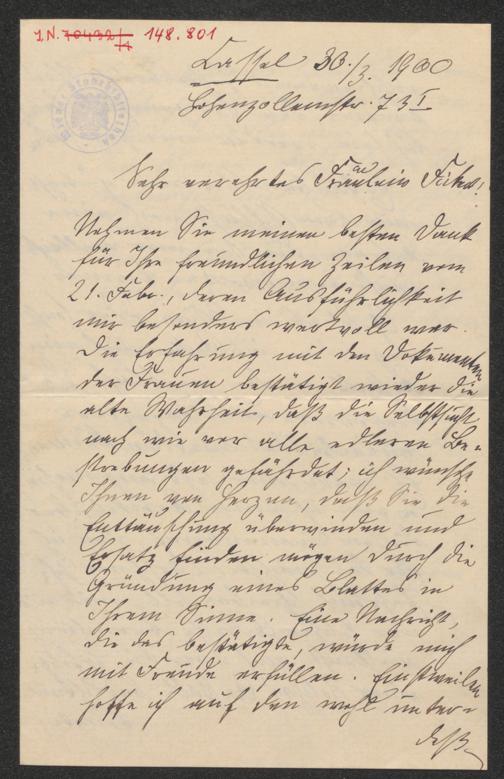 I.N. 70432/4 148.801
Cassel 30./3. 1900
Hohenzollernstr. 73 I
Sehr verehrtes Fräulein Fickert!
Nehmen Sie meinen besten Dank
für Ihre freundlichen Zeilen vom
21. Febr., deren Ausführlichkeit
mir besonders wertvoll war.
Die Erfahrung mit den Dokumenten
der Frauen bestätigt wieder die
alte Wahrheit, daß die Selbstsucht
nach wie vor alle edleren Be-
strebungen gefährdet; ich wünsche
Ihnen von Herzen, daß Sie die
Enttäuschung überwinden und
Ersatz finden mögen durch die
Gründung eines Blattes in
Ihrem Sinne. Eine Nachricht,
die das bestätigte, würde mich
mit Freude erfüllen. Einstweilen
hoffe ich auf den wohl unter-
deß